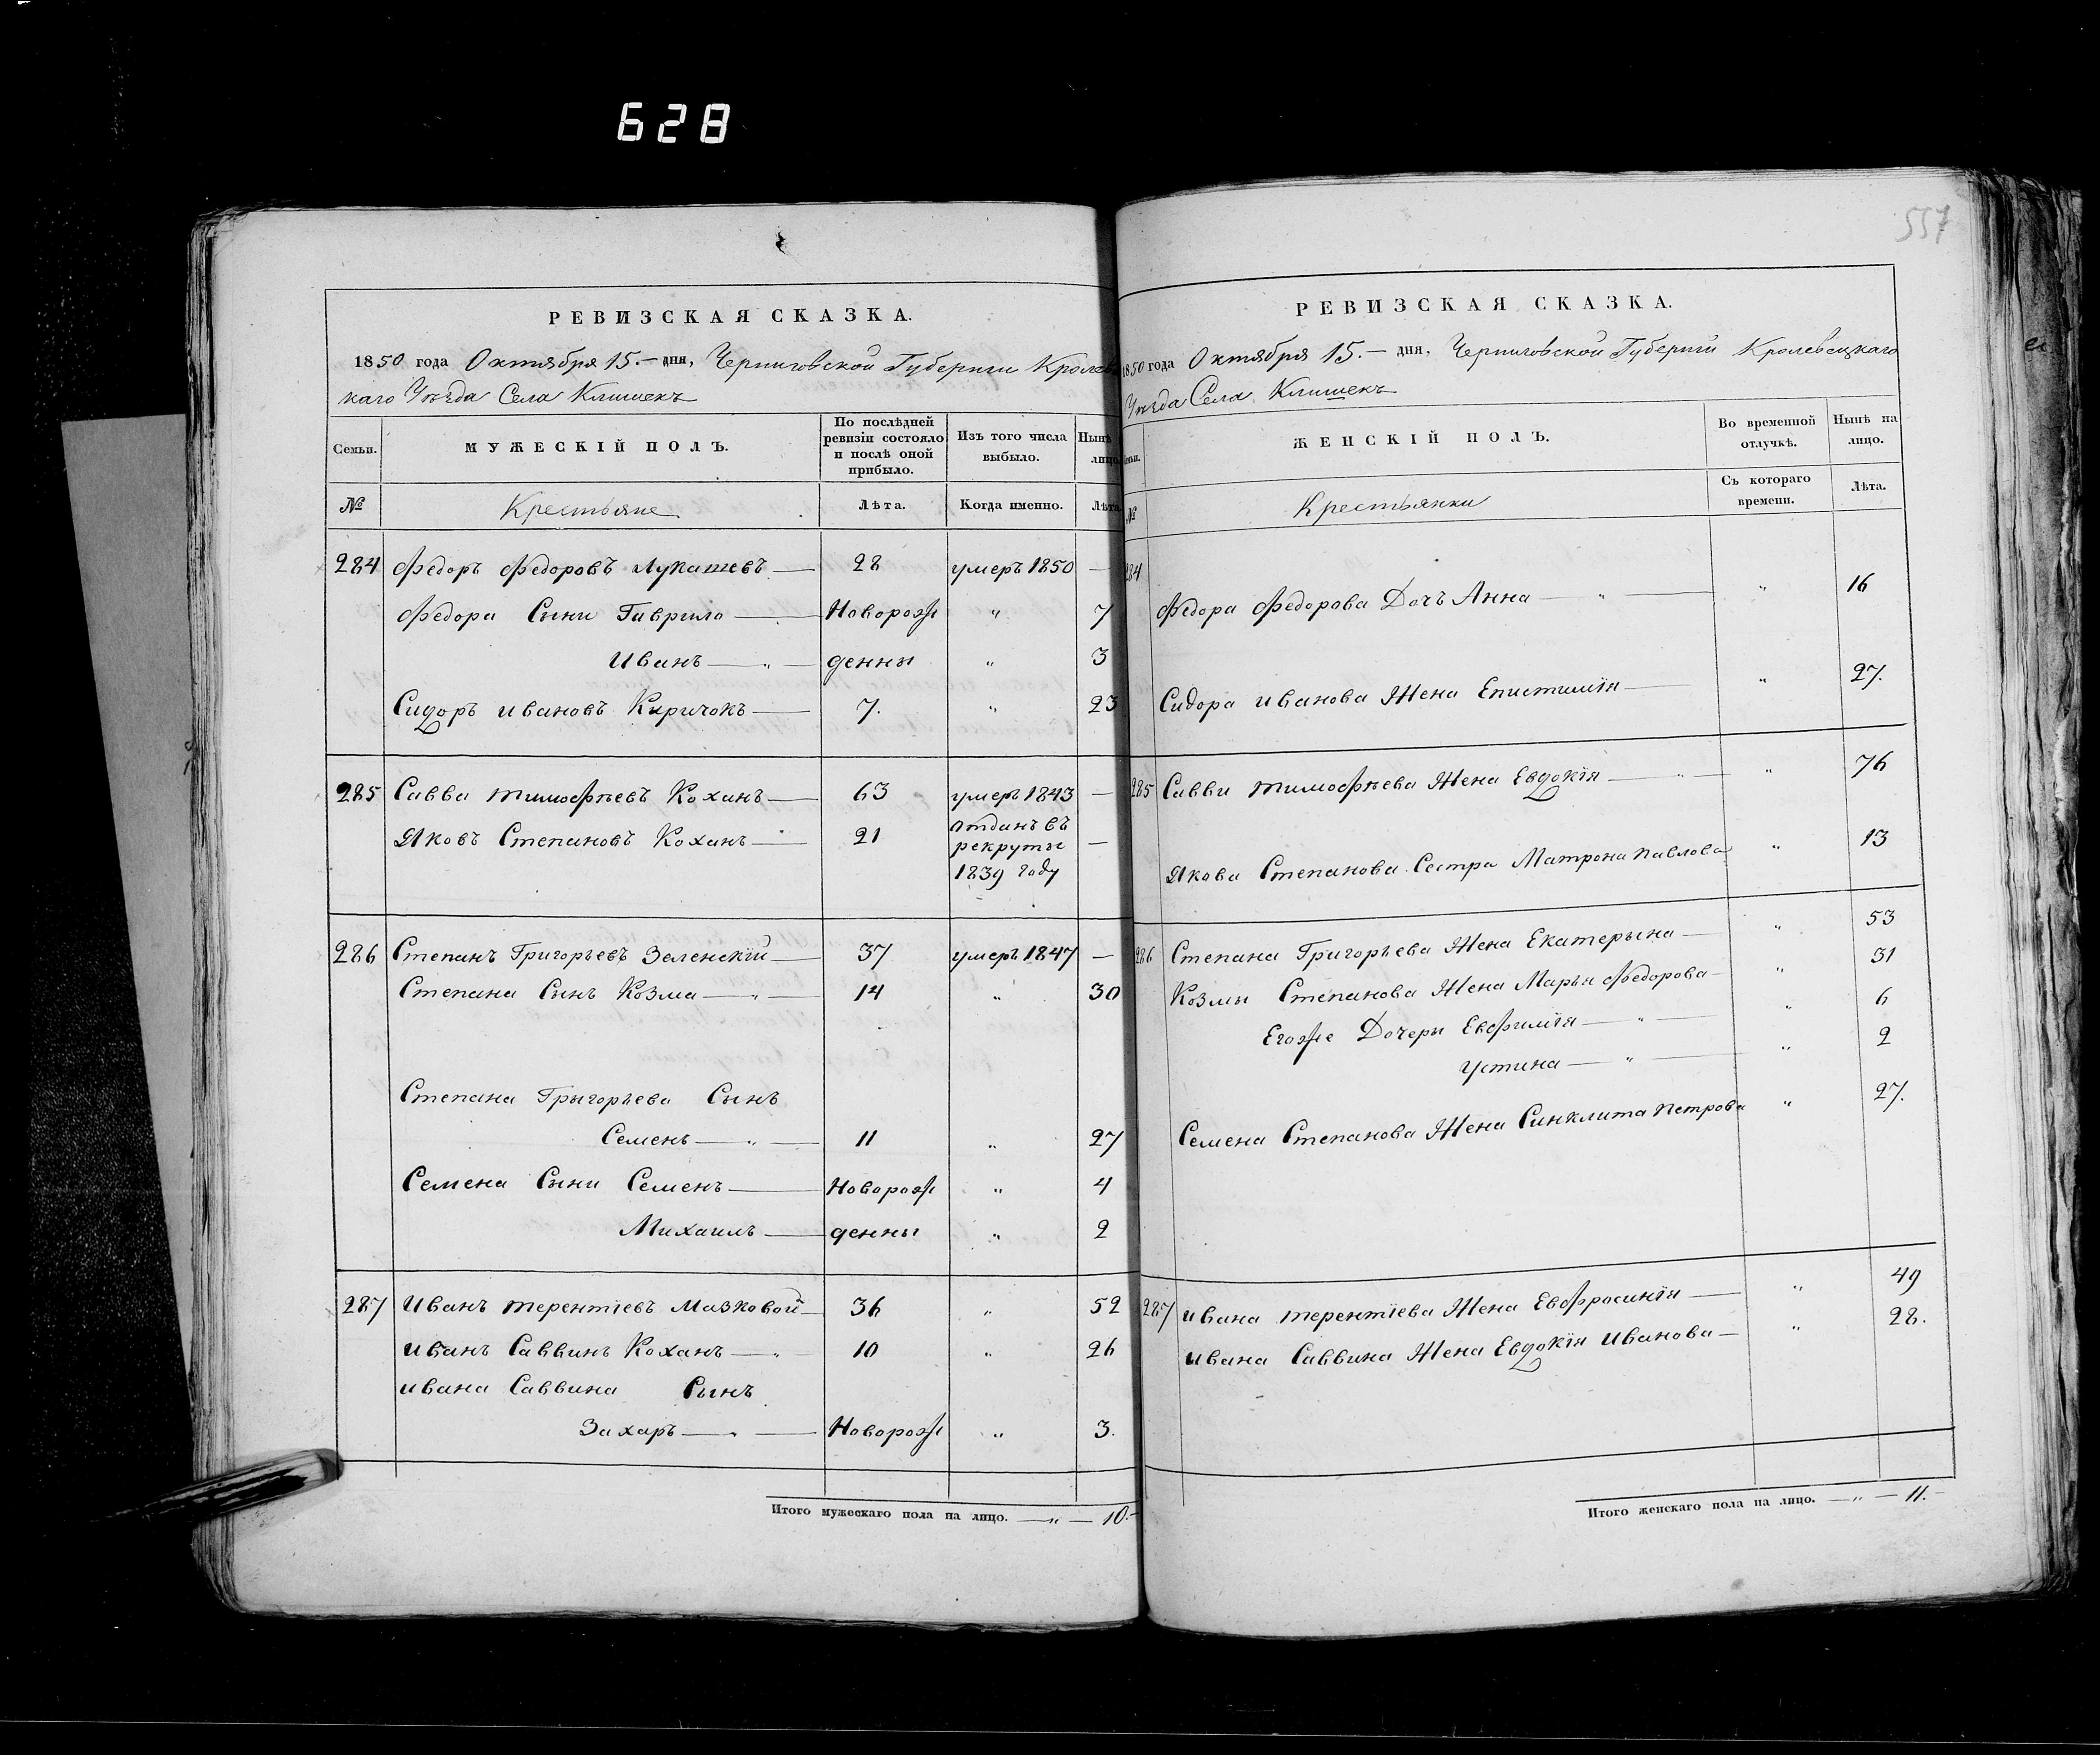 628
557
РЕВИЗСКАЯ СКАЗКА.
1850 года Октября 15.— дня, Черниговской Губернии Кролевец
каго Уѣзда Села Клишекъ
Семьи.
МУЖЕСКІЙ ПОЛЪ.
По послѣдней ревизіи состояло и послѣ оной прибыло.
Изъ того числа выбыло.
Нынѣ лицо.
№ Крестьяне Лѣта. Когда именно. Лѣта
284 Федоръ Федоровъ Лукашевъ — 28 умеръ 1850 —
Федора Сыни Гаврило — Новорож " 7
Иванъ — " — денны " 3
Сидоръ Ивановъ Киричокъ — 7. " 23
285 Савва Тимофѣевъ Коханъ — 63 умеръ 1843 —
Яковъ Степановъ Коханъ — 21 отданъ въ
рекруты —
1839 году
286 Степанъ Григорьевъ Зеленскій — 37 умеръ 1847 —
Степана Сынъ Козма — " — 14 " 30
Степана Григорьева Сынъ
Семенъ — " — 11 " 27
Семена Сыни Семенъ — Новорож " 4
Михаилъ — денны " 2
287 Иванъ Терентіевъ Мазковой — 36 " 52
Иванъ Саввинъ Коханъ — " — 10 " 26
Ивана Саввина Сынъ
Захаръ — " — Новорож " 3.
Итого мужескаго пола на лицо. — " — 10.—
РЕВИЗСКАЯ СКАЗКА.
1850 года Октября 15.— дня, Черниговской Губерніи Кролевецкаго
Уѣзда Села Клишекъ
ЖЕНСКІЙ ПОЛЪ.
Во временной отлучкѣ.
Нынѣ на лицо.
№ Крестьянки Съ котораго времени. Лѣта.
284
Федора Федорова Дочъ Анна — " — " 16
Сидора Иванова Жена Епистимія — " 27.
285 Савви Тимофѣева Жена Евдокія — " — " 76
Якова Степанова Сестра Матрона Павлова " 13
286 Степана Григорьева Жена Екатерына — " 53
Козмы Степанова Жена Марья Федорова — " 31
Егоже Дочеры Евфимія — " — " 6
Устина — " — " 2
Семена Степанова Жена Синклита Петрова " 27.
287 Ивана Терентіева Жена Евфросинія — " 49
Ивана Саввина Жена Евдокія Иванова — " 28.
Итого женскаго пола на лицо. — " — 11.—